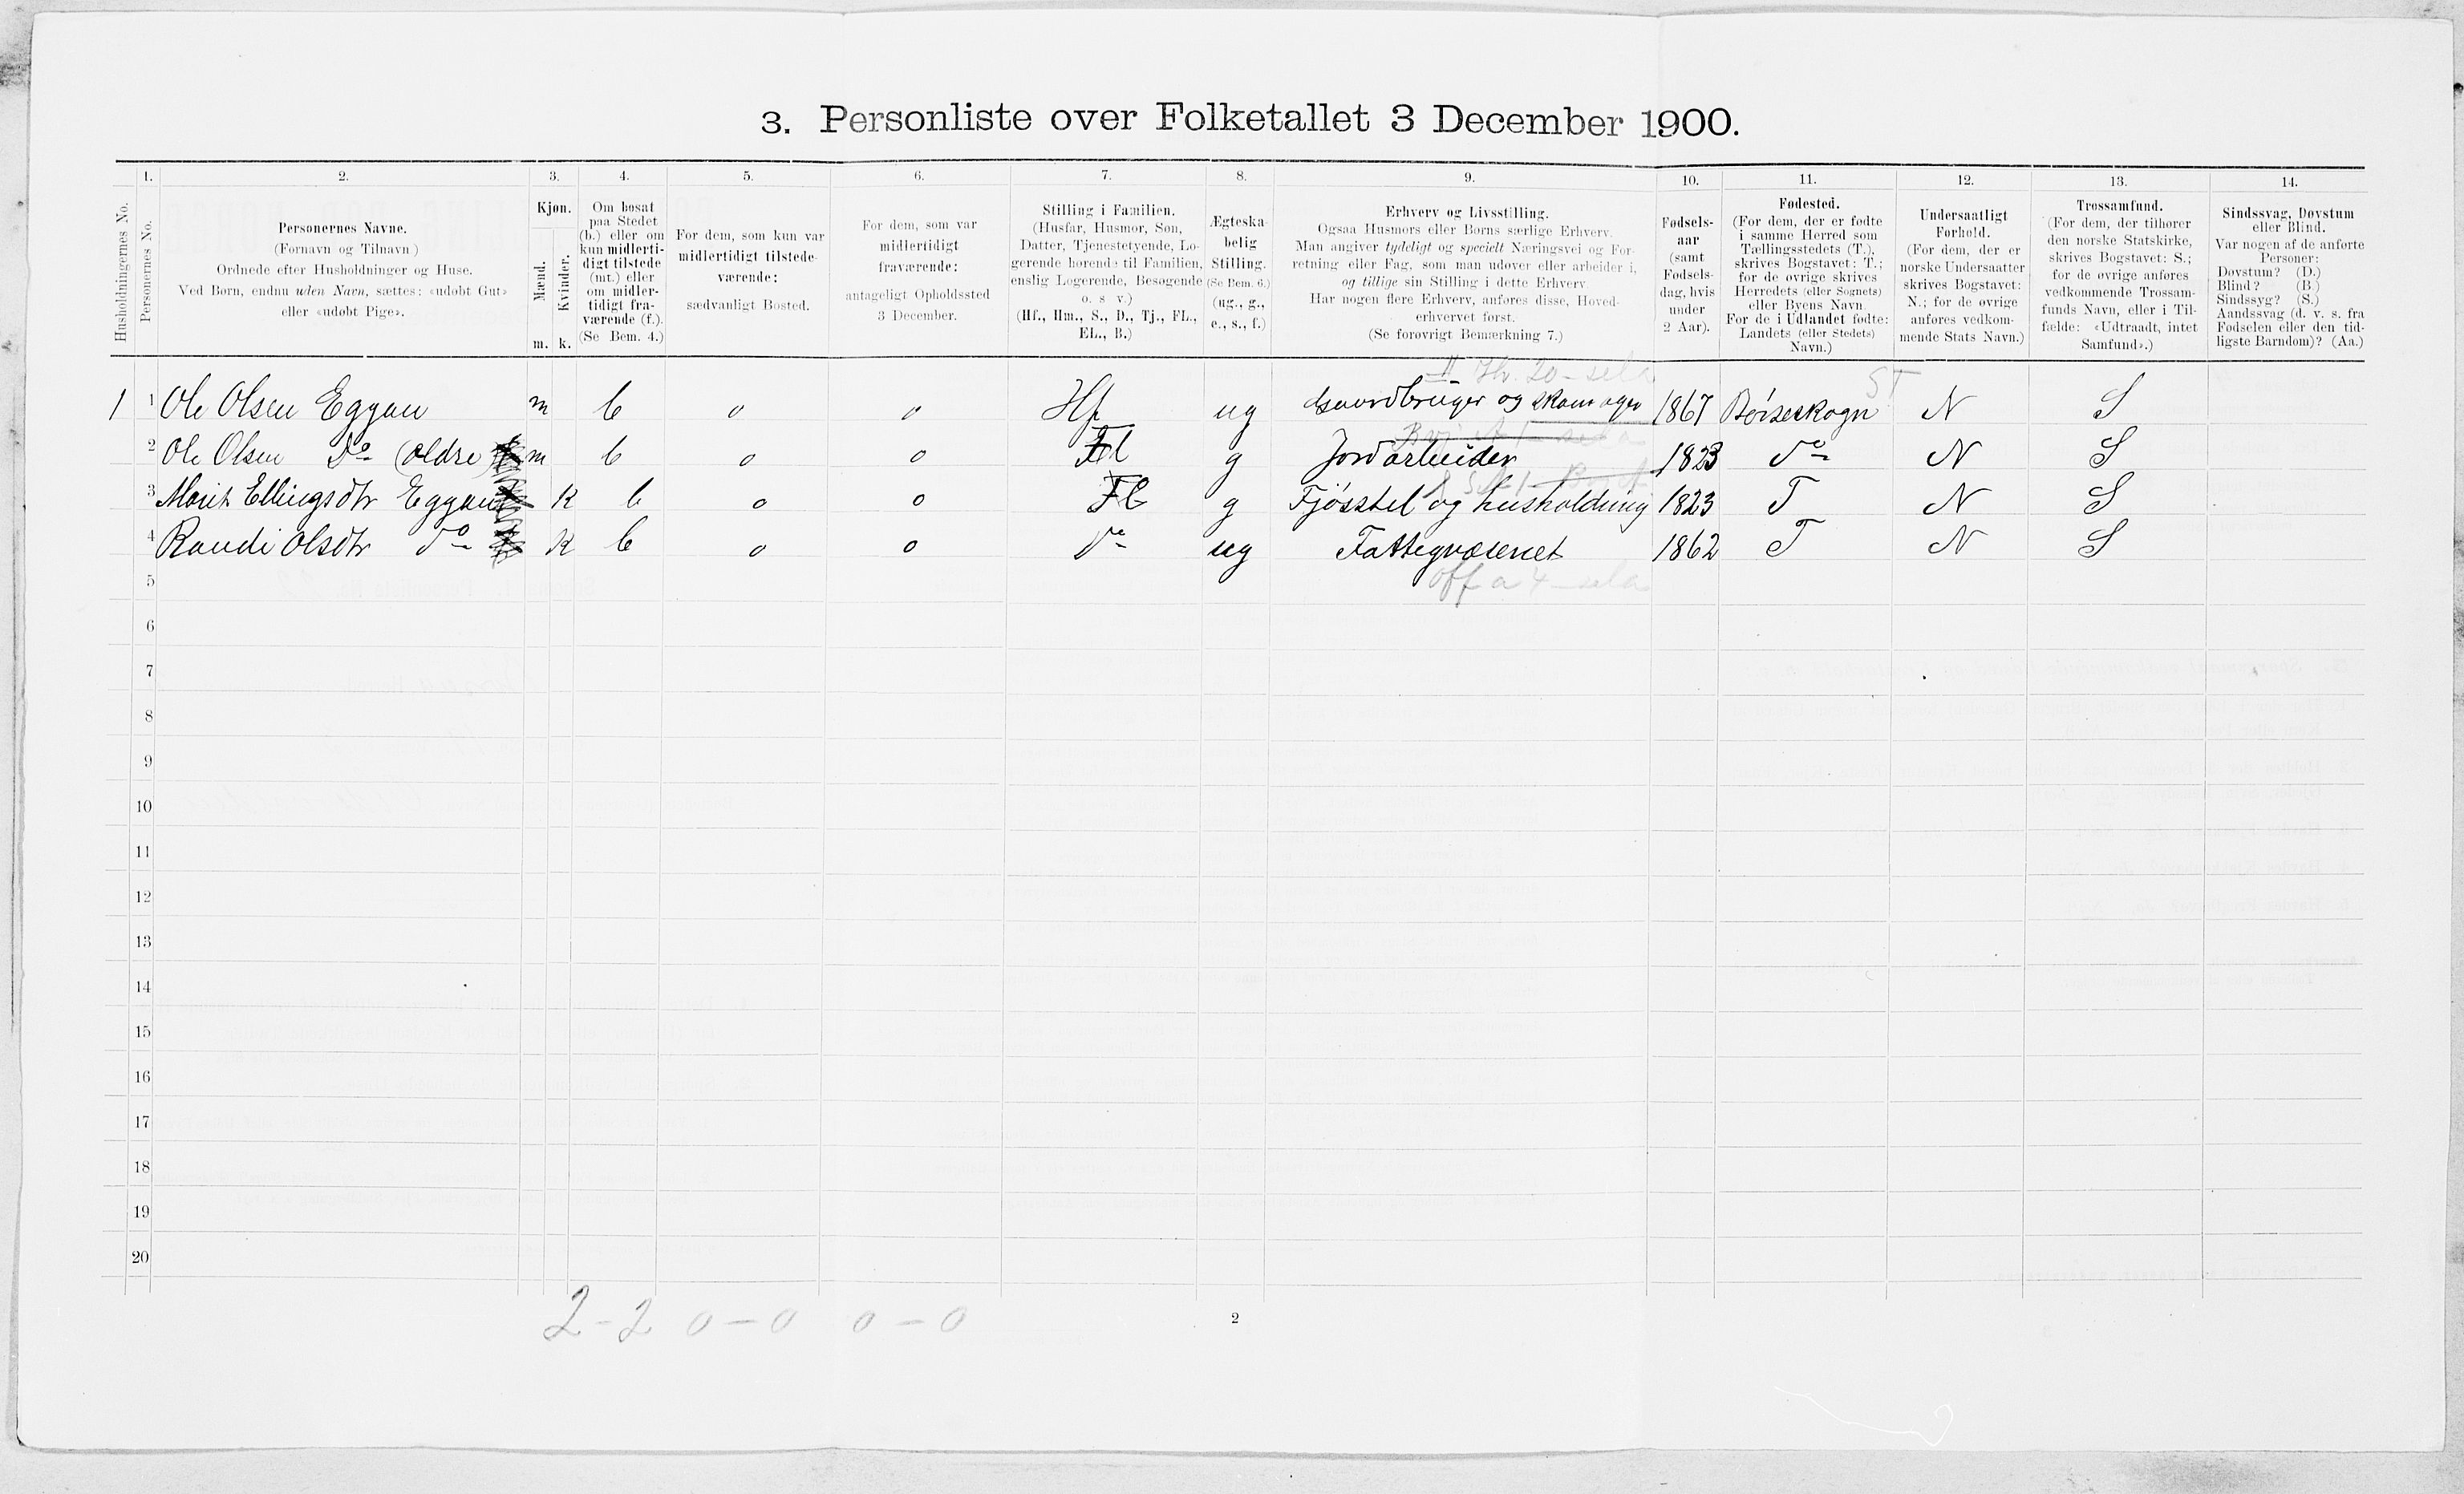 3. Personliste over Folketallet 3 December 1900.
1. 2. 3. 4. 5. 6. 7. 8. 9. 10. 11. 12. 13. 14.
Husholdningernes No.
Personernes No.
Personernes Navne.
(Fornavn og Tilnavn.)
Ordnede efter Husholdninger og Huse.
Ved Børn, endnu uden Navn, sættes: «udøbt Gut»
eller «udøbt Pige».
Kjøn.
Mænd.
Kvinder.
m. k.
Om bosat
paa Stedet
(b.) eller om
kun midlerti-
digt tilstede
(mt.) eller
om midler-
tidigt fra-
værende (f.).
(Se Bem. 4.)
For dem, som kun var
midlertidigt tilstede-
værende:
sædvanligt Bosted.
For dem, som var
midlertidigt
fraværende:
antageligt Opholdssted
3 December.
Stilling i Familien.
(Husfar, Husmor, Søn,
Datter, Tjenestetyende, Lo-
gerende hørende til Familien,
enslig Logerende, Besøgende
o. s v.)
(Hf., Hm., S., D., Tj., FL.,
EL., B.)
Ægteska-
belig
Stilling.
(Se Bem. 6.)
(ug., g.,
e., s., f.)
Erhverv og Livsstilling.
Ogsaa Husmors eller Børns særlige Erhverv.
Man angiver tydeligt og specielt Næringsvei og For-
retning eller Fag, som man udøver eller arbeider i,
og tillige sin Stilling i dette Erhverv.
Har nogen flere Erhverv, anføres disse, Hoved-
erhvervet først.
(Se forøvrigt Bemærkning 7.)
Fødsels-
aar
(samt
Fødsels-
dag, hvis
under
2 Aar).
Fødested.
(For dem, der er fødte
i samme Herred som
Tællingsstedets (T.),
skrives Bogstavet: T.;
for de øvrige skrives
Herredets (eller Sognets)
eller Byens Navn.
For de i Udlandet fødte:
Landets (eller Stedets)
Navn.)
Undersaatligt
Forhold.
(For dem, der er
norske Undersaatter
skrives Bogstavet:
N.; for de øvrige
anføres vedkom-
mende Stats Navn.)
Trossamfund.
(For dem, der tilhører
den norske Statskirke,
skrives Bogstavet: S.;
for de øvrige anføres
vedkommende Trossam-
funds Navn, eller i Til-
fælde: «Udtraadt, intet
Samfund».)
Sindssvag, Døvstum
eller Blind.
Var nogen af de anførte
Personer:
Døvstum? (D.)
Blind? (B.)
Sindssyg? (S.)
Aandssvag (d. v. s. fra
Fødselen eller den tid-
ligste Barndom)? (Aa.)
1 1 Ole Olsen Eggan m b 0 0 Hf ug Gaardbruger og Skomager 1867 Børseskogn N S
ST
2 Ole Olsen Do (ældre) m b 0 0 Fl g Jordarbeider 1823 do N S
3 Marit Ellingsdtr Eggan k b 0 0 Fl g Fjøsstel og husholdning 1823 T N S
4 Randi Olsdtr do k b 0 0 do ug Fattigvæsenet 1862 T N S
5
6
7
8
9
10
11
12
13
14
15
16
17
18
19
20
2-2 0-0 0-0
2